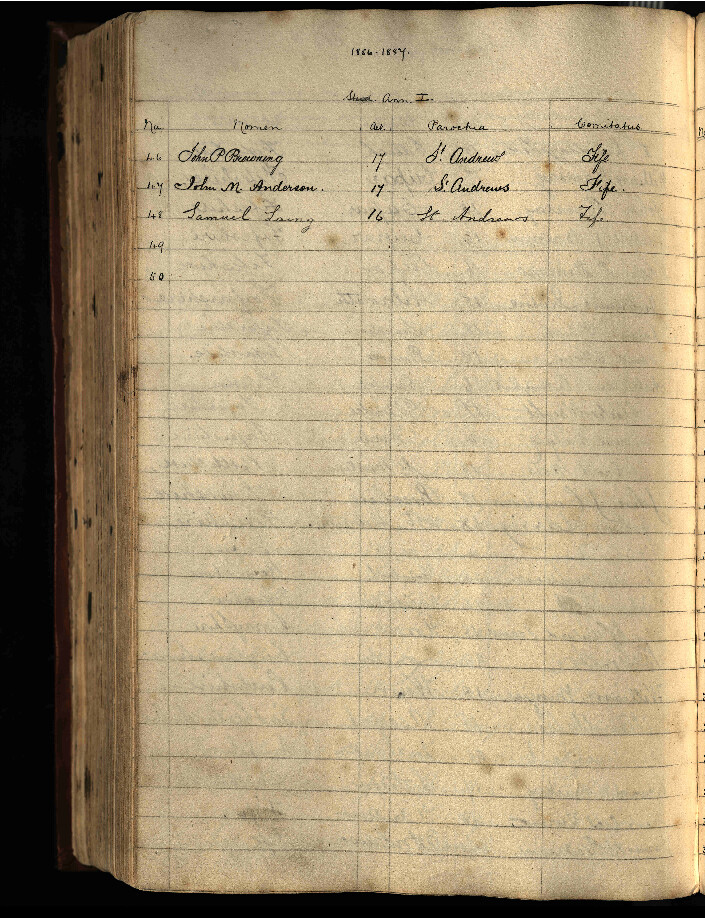 1886-1887.
Stud. Ann. I.
No. Nomen Aet. Parochia Comitatus
46 John P Browning 17 St Andrews Fife
47 John M. Anderson. 17 St. Andrews Fife.
48 Samuel 16 St Andrews Fife
49
50